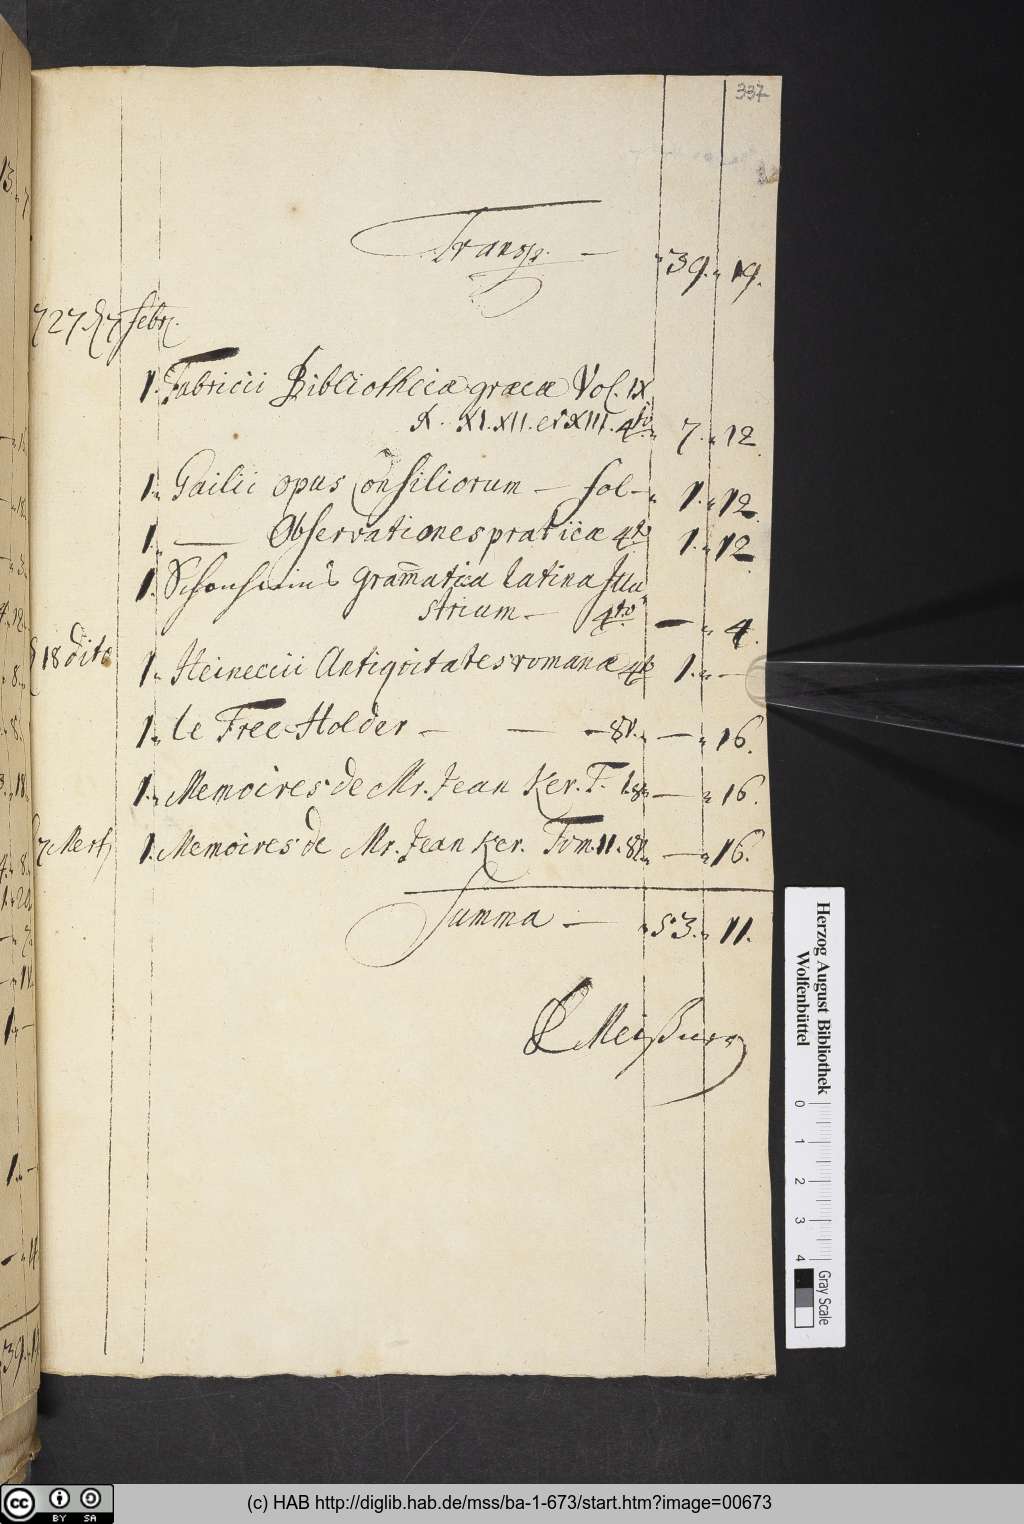 337
Transp. — 39. 19.
727 d 7 febr.
1. Fabricii Bibliothecæ græcæ Vol. IX.
X. XI. XII. et XIII. 4to 7. 12.
1. Gailii opus Consiliorum — fol — 1. 12.
1. — Observationes practicæ 4to 1. 12
1. Grammatica Latina Illu
strium — 4to. — 4.
18 dito
1. Heineccii Antiqvitates romanæ 4to 1. —
1. le Free-Holder — — 8v. — 16.
1. Memoires de Mr. Jean Ker. T. I. 8v — 16.
7 Mert
1. Memoires de Mr. Jean Ker. Tom. II. 8v. — 16.
Summa — 53. 11.
Meißner
Herzog August Bibliothek
Wolfenbüttel
0 1 2 3 4
Gray Scale
39.
cc BY SA
(c) HAB http://diglib.hab.de/mss/ba-1-673/start.htm?image=00673